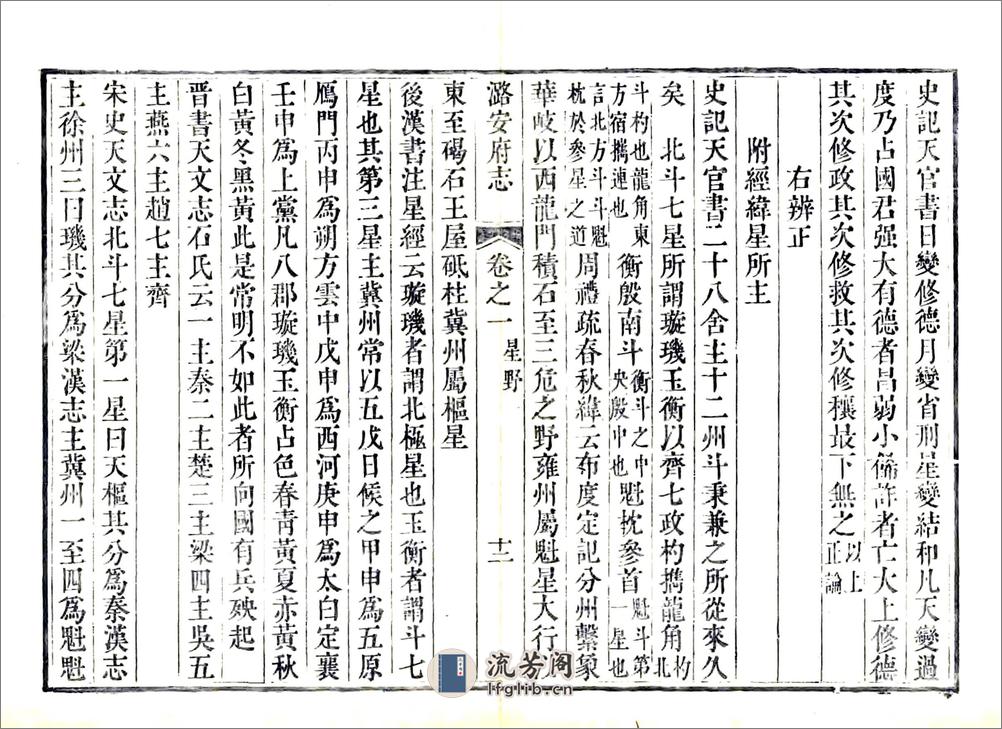 史記天官書日變修德月變省刑星變結和凡天變過
度乃占國君强大有德者昌弱小飾詐者亡大上修德
其次修政其次修救其次修穰最下無之以上正論
右辨正
附經緯星所主
史記天官書二十八舍主十二州斗秉兼之所從來久
矣 北斗七星所謂璇璣玉衡以齊七政杓擕龍角杓北
斗杓也龍角東方宿攜連也 衡殷南斗衡斗之中央殷中也魁枕參首魁斗第一星也
言北方斗斗魁枕於參星之道 周禮疏春秋緯云布度定記分州繫象
華岐以西龍門積石至三危之野雍州屬魁星大行以
潞安府志 卷之一 星野 十二
東至碣石王屋砥柱冀州屬樞星
後漢書注星經云璇璣者謂北極星也玉衡者謂斗七
星也其第三星主冀州常以五戊日候之甲申爲五原
鴈門丙申爲朔方雲中戊申爲西河庚申爲太白定襄
壬申爲上黨凡八郡璇璣玉衡占色春靑黃夏赤黃秋
白黃冬黑黃此是常明不如此者所向國有兵殃起
晋書天文志石氏云一主秦二主楚三主梁四主吳五
主燕六主趙七主齊
宋史天文志北斗七星第一星曰天樞其分爲秦漢志
主徐州三曰璣其分爲梁漢志主冀州一至四爲魁魁
流芳阁
lfglib.cn